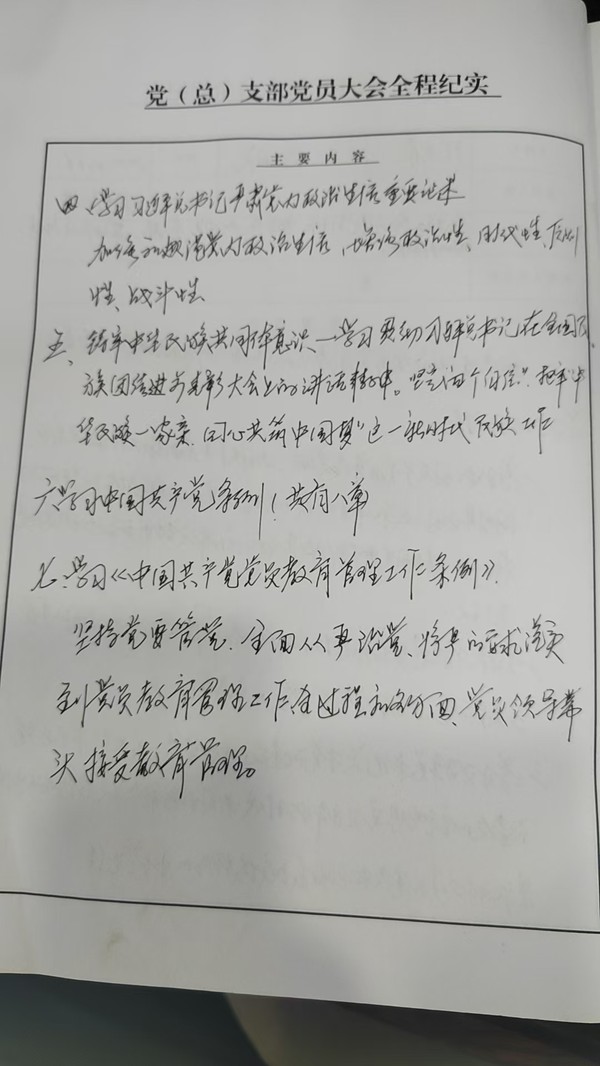 党（总）支部党员大会全程纪实
主要内容
四、学习习近平总书记严肃党内政治生活重要论述
加强和规范党内政治生活，增强政治性、时代性、原则
性、战斗性
五、铸牢中华民族共同体意识—学习贯彻习近平总书记在全国民
族团结进步表彰大会上的讲话精神。坚定四个自信"把牢"中
华民族一家亲、同心共筑中国梦"这一新时代民族工作
六、学习中国共产党条例（共有八章
七、学习《中国共产党党员教育管理工作条例》。
坚持党要管党、全面从严治党、将严的要求落实
到党员教育管理工作全过程和各方面、党员领导带
头接受教育管理。